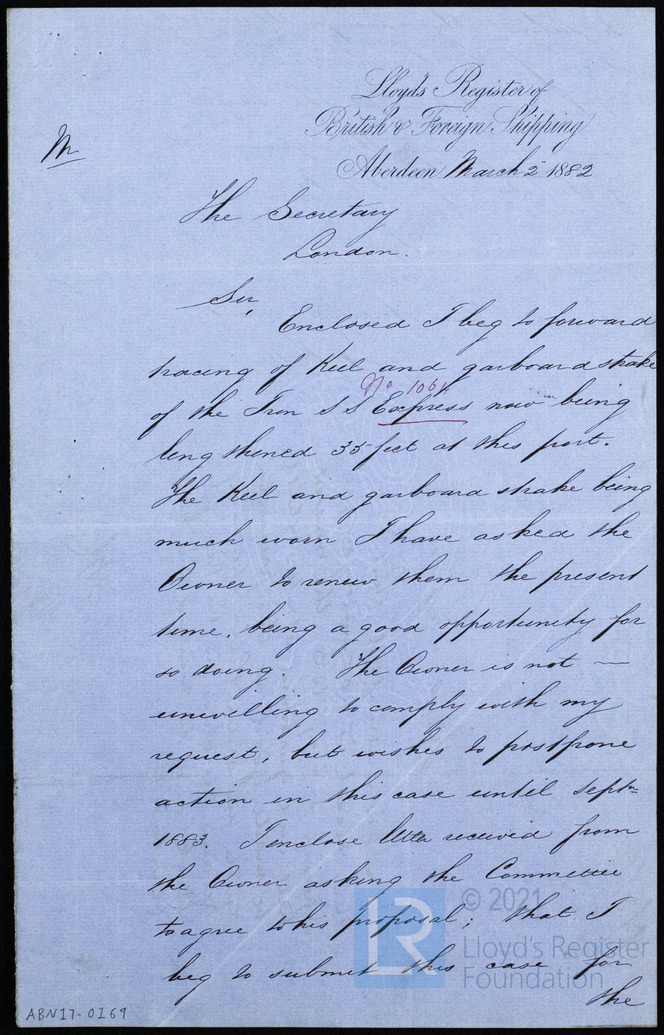 Lloyd's Register of
British & Foreign Shipping
Aberdeen March 2 1882
The Secretary
London.
Sir,
Enclosed I beg to forward
tracing of Keel and garboard strake
No 1064
of the Iron S S Express now being
lengthened 35 feet at this port.
The Keel and garboard strake being
much worn I have asked the
Owner to renew them the present
time, being a good opportunity for
so doing. The Owner is not —
unwilling to comply with my
request, but wishes to postpone
action in this case until Septr
1883. I enclose letter received from
the Owner asking the Committee
to agree to his proposal; that I
beg to submit this case for
the
© 2021
LR
Lloyd's Register
Foundation
ABN17-0169